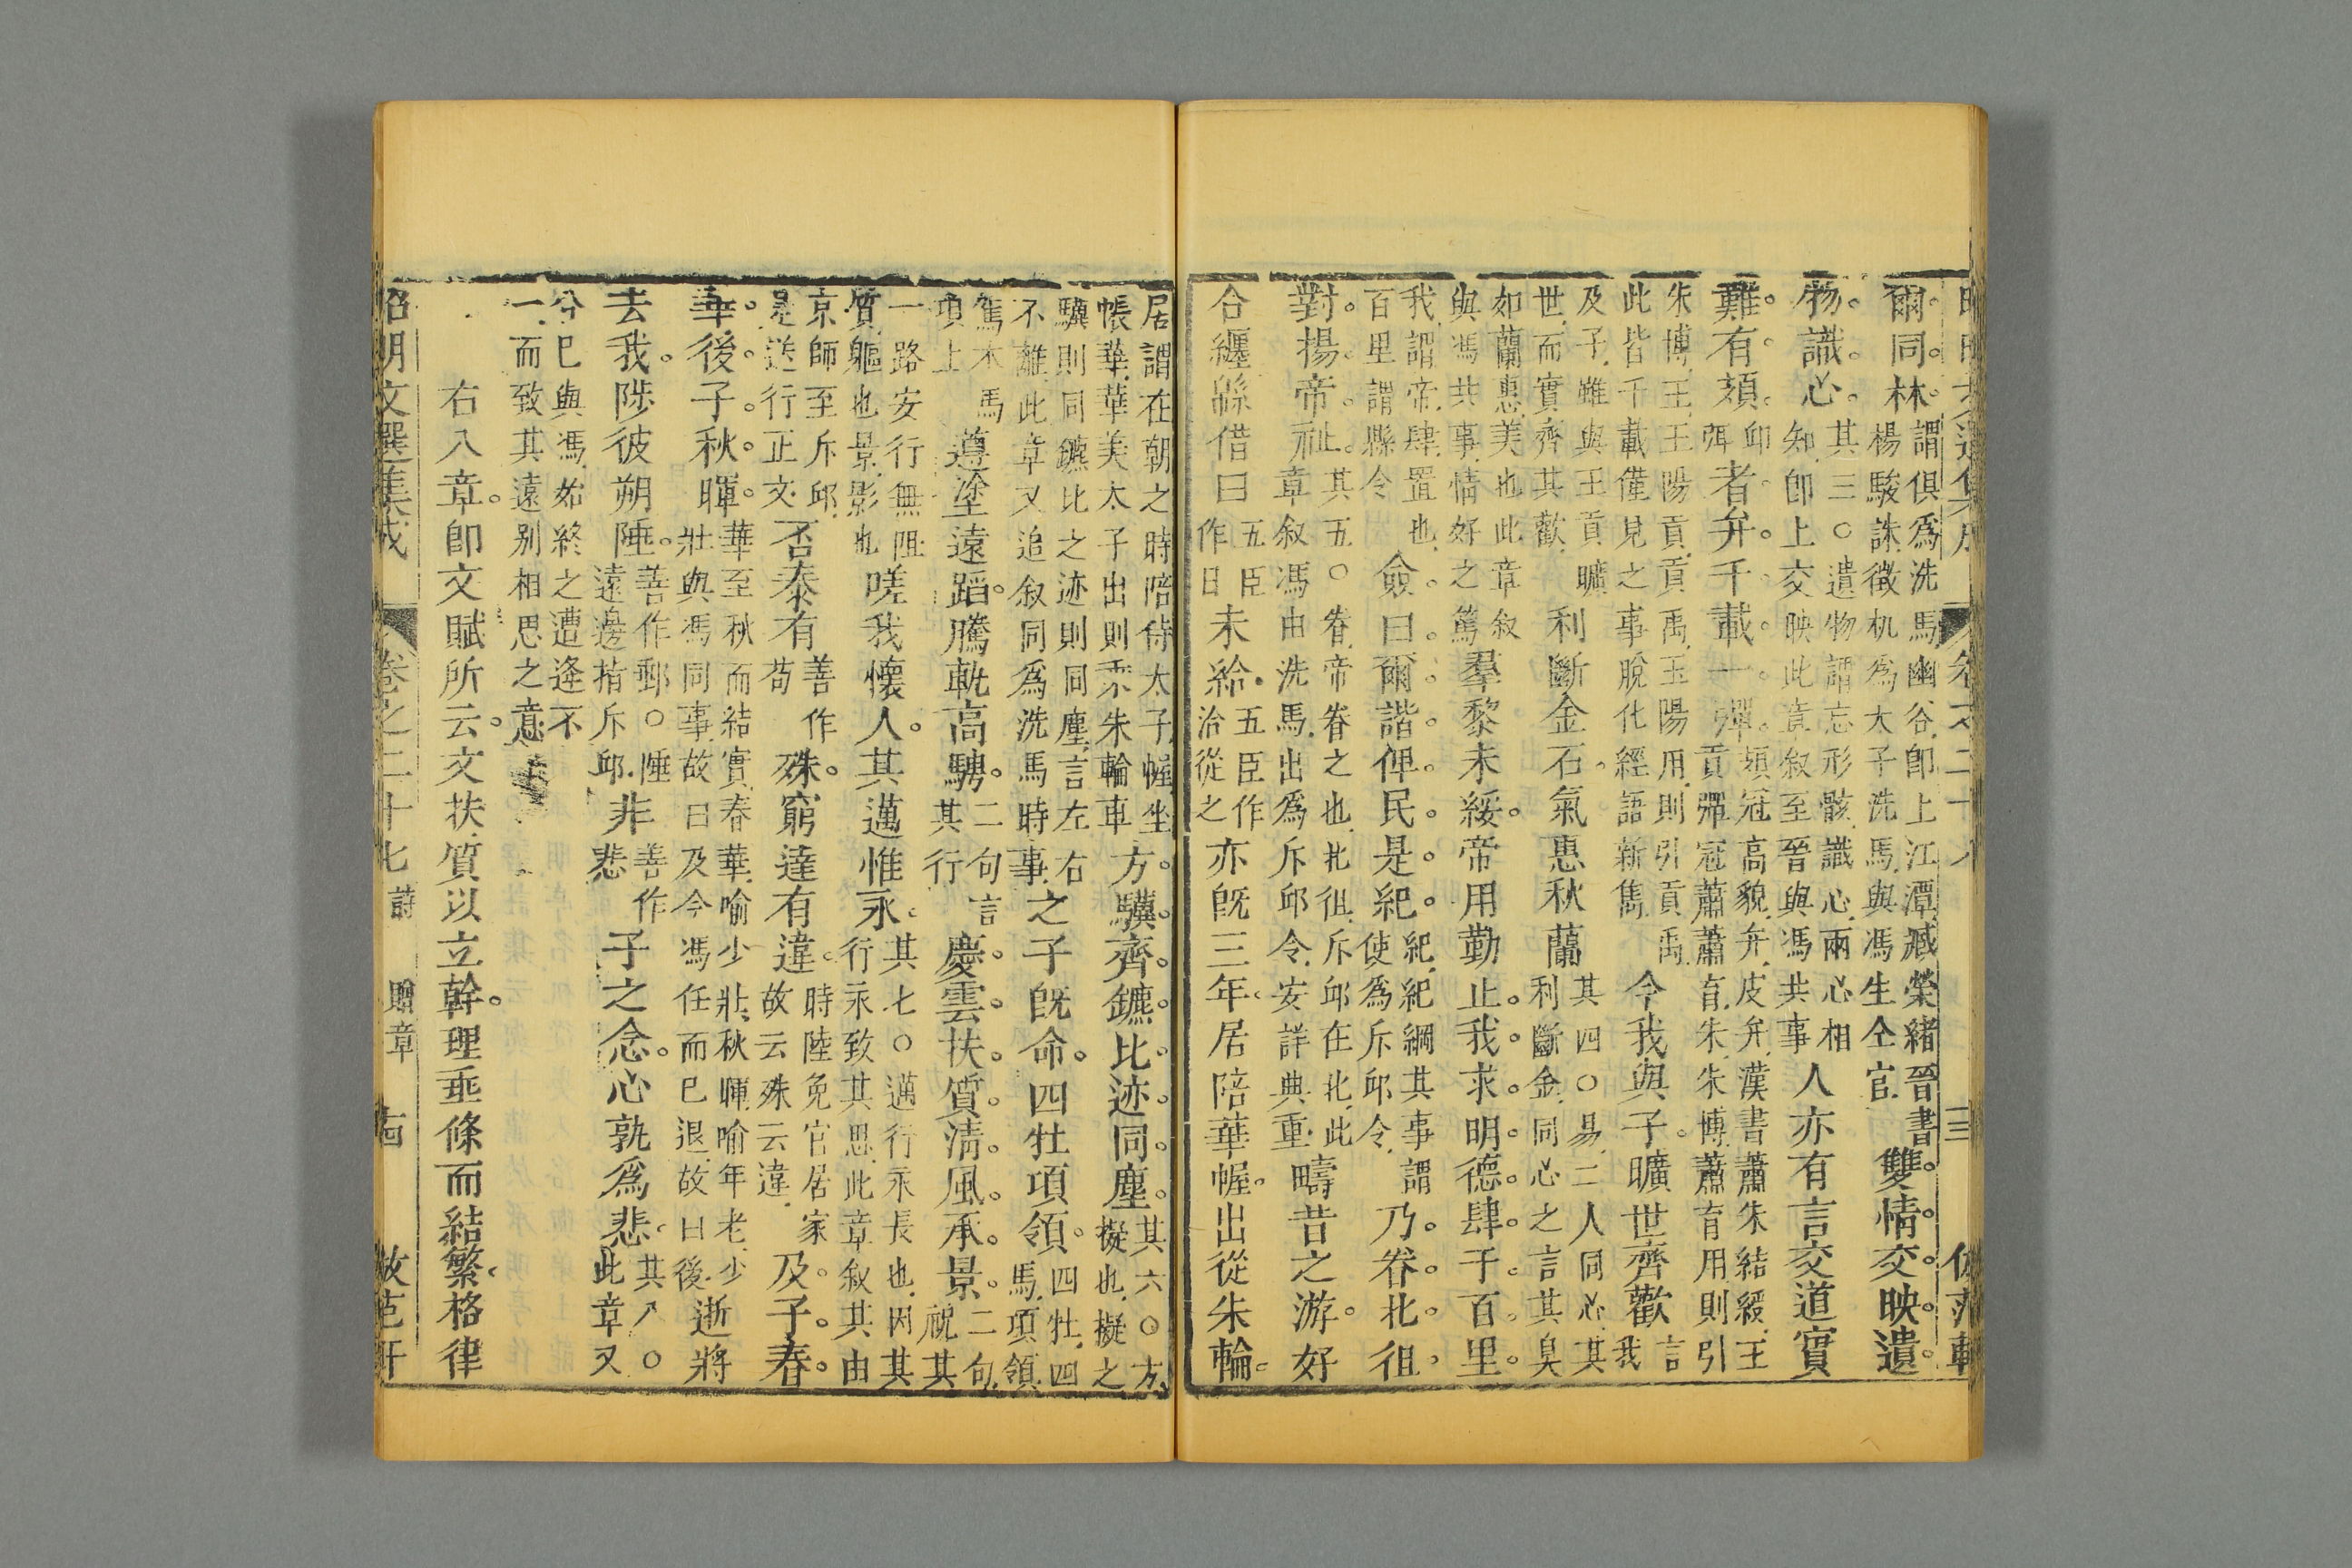 爾同林謂俱爲洗馬幽谷卽上江潭臧榮緖晉書楊駿誅徵机爲太子洗馬與馮生仝官雙情交映遺
物識心其三○遺物謂忘形骸識心兩心相知卽上交映此章叙至晉與馮共事人亦有言交道實
難有頍卭弭者弁千載一彈頍冠高貌弁皮弁漢書蕭朱結綬王貢彈冠蕭蕭育朱朱博蕭育用則引
朱博王王陽貢貢禹王陽用則引貢禹此皆千載僅見之事脫化經語新雋今我與子曠世齊歡言我
及子雖與王貢曠世而實齊其歡利斷金石氣惠秋蘭其四○易二人同心其利斷金同心之言其臭
如蘭惠美也此章叙與馮共事情好之篤羣黎未綏帝用勤止我求明德肆于百里
我謂帝肆置也百里謂縣令僉曰爾諧俾民是紀紀紀綱其事謂使爲斥邱令乃眷北徂
對揚帝祉其五○眷帝眷之也北徂斥邱在北此章叙馮由洗馬出爲斥邱令安詳典重疇昔之游好
合纏緜借曰五臣作日未給五臣作洽從之亦旣三年居陪華幄出從朱輪
居謂在朝之時陪侍太子幄坐帳華華美太子出則乘朱輪車方驥齊鑣比迹同塵其六○方擬也擬之
驥則同鑣比之迹則同塵言左右不離此章又追叙同爲洗馬時事之子旣命四牡項領四牡四馬項領
駕木馬項上遵塗遠蹈騰軌高騁二句言其行慶雲扶質淸風承景二句祝其
一路安行無阻質軀也景影也嗟我懷人其邁惟永其七○邁行永長也因其行永致其思此章叙其由
京師至斥邱是送行正文否泰有善作苟殊窮達有違時陸免官居家故云殊云違及子春
華後子秋暉華至秋而結實春華喻少壯秋暉喻年老少壯與馮同事故曰及今馮任而已退故曰後逝將
去我陟彼朔陲善作郵○陲遠邊指斥邱非善作悲子之念心孰爲悲其八○此章又
兮已與馮始終之遭逢不一而致其遠別相思之意
右八章卽文賦所云文扶質以立幹理垂條而結繁格律
昭明文選集成　卷之二十七 詩　贈章　古　倣范軒